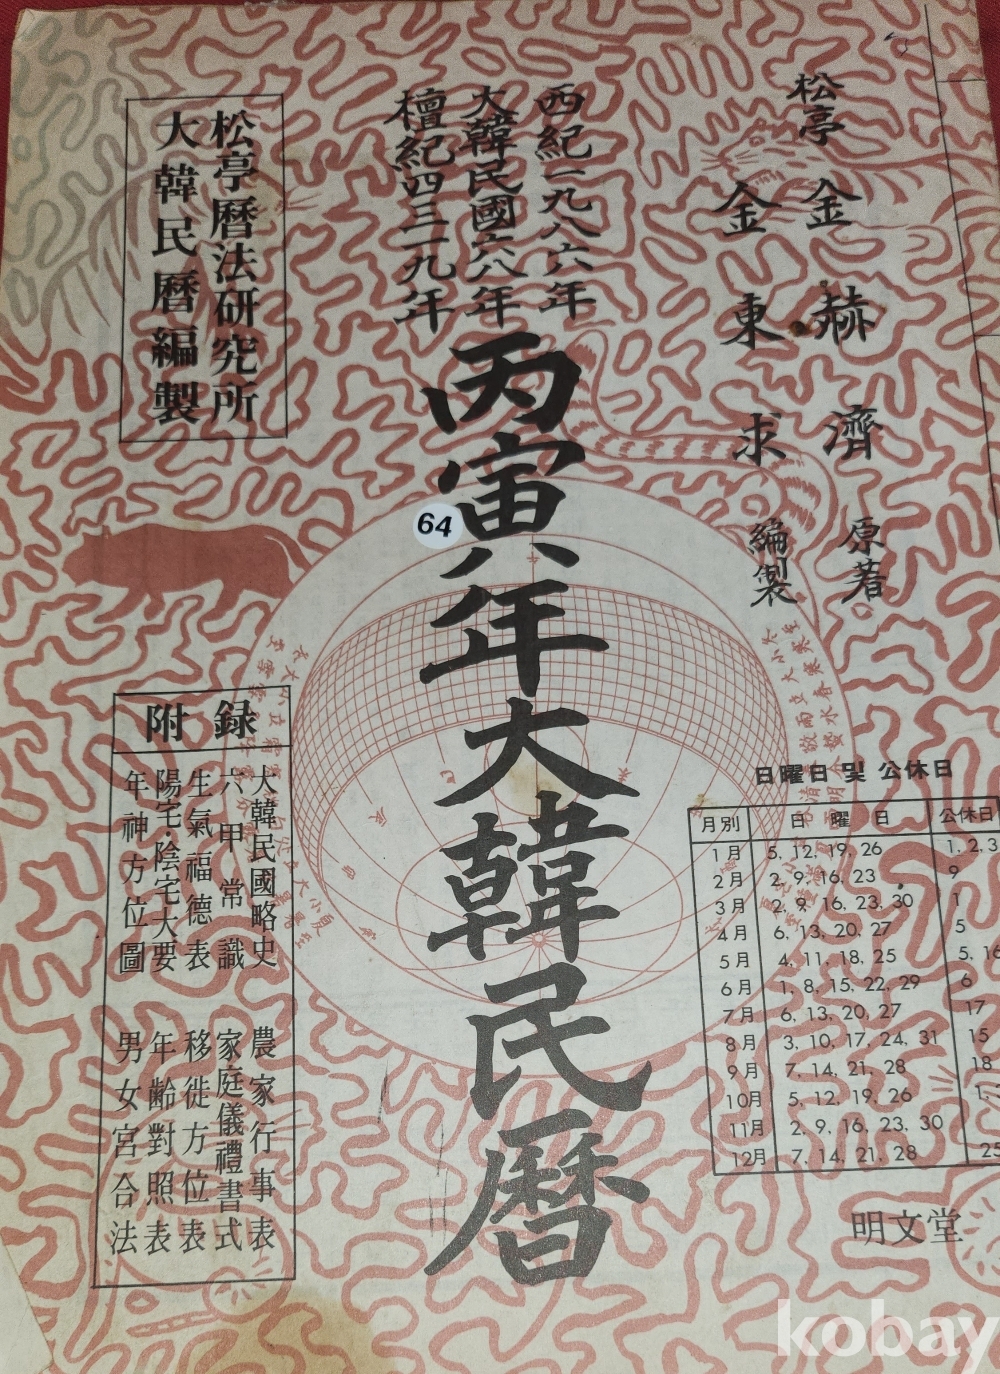 松亭 金赫濟 原著
金東求 編製
西紀一九八六年
大韓民國六八年
檀紀四三一九年
丙寅年大韓民曆
松亭曆法硏究所
大韓民曆編製
64
附錄
大韓民國略史 農家行事表
六甲常識 家庭儀禮書式
生氣福德表 移徙方位表
陽宅·陰宅大要 年齡對照表
年神方位圖 男女宮合法
日曜日 및 公休日
月別 日曜日 公休日
1月 5, 12, 19, 26 1, 2, 3
2月 2, 9, 16, 23 9
3月 2, 9, 16, 23, 30 1
4月 6, 13, 20, 27 5
5月 4, 11, 18, 25 5, 16
6月 1, 8, 15, 22, 29 6
7月 6, 13, 20, 27 17
8月 3, 10, 17, 24, 31 15
9月 7, 14, 21, 28 18
10月 5, 12, 19, 26 1,
11月 2, 9, 16, 23, 30
12月 7, 14, 21, 28 25
明文堂
kobay